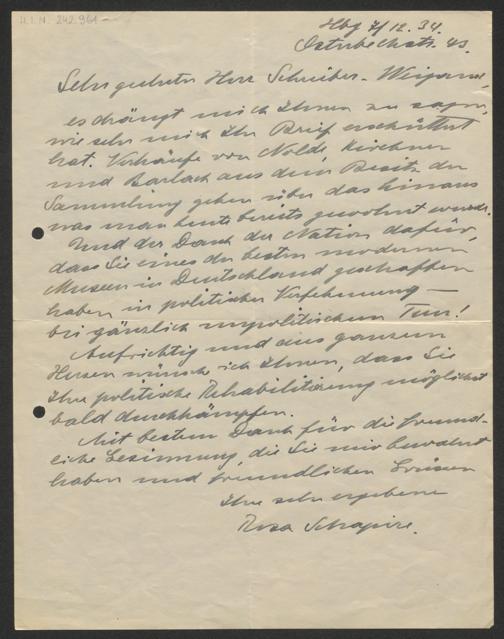 H.I.N. 242.961
Hbg 7/12.34.
Osterbeckstr. 43.
Sehr geehrter Herr Schreiber-Weigand,
es drängt mich Ihnen zu sagen,
wie sehr mich Ihr Brief erschüttert
hat. Verkäufe von Nolde, Kirchner
und Barlach aus dem Besitz der
Sammlung gehen über das hinaus
was man heute bereits gewohnt wurde.
Und der Dank der Nation dafür,
dass Sie eines der besten modernen
Museen in Deutschland geschaffen
haben in politischer Verfehmung —
bei gänzlich unpolitischem Tun!
Aufrichtig und aus ganzem
Herzen wünsche ich Ihnen, dass Sie
Ihre politische Rehabilitierung möglichst
bald durchkämpfen.
Mit bestem Dank für die freund-
liche Gesinnung, die Sie mir bewahrt
haben und freundlichen Grüssen
Ihre sehr ergebene
Rosa Schapire.